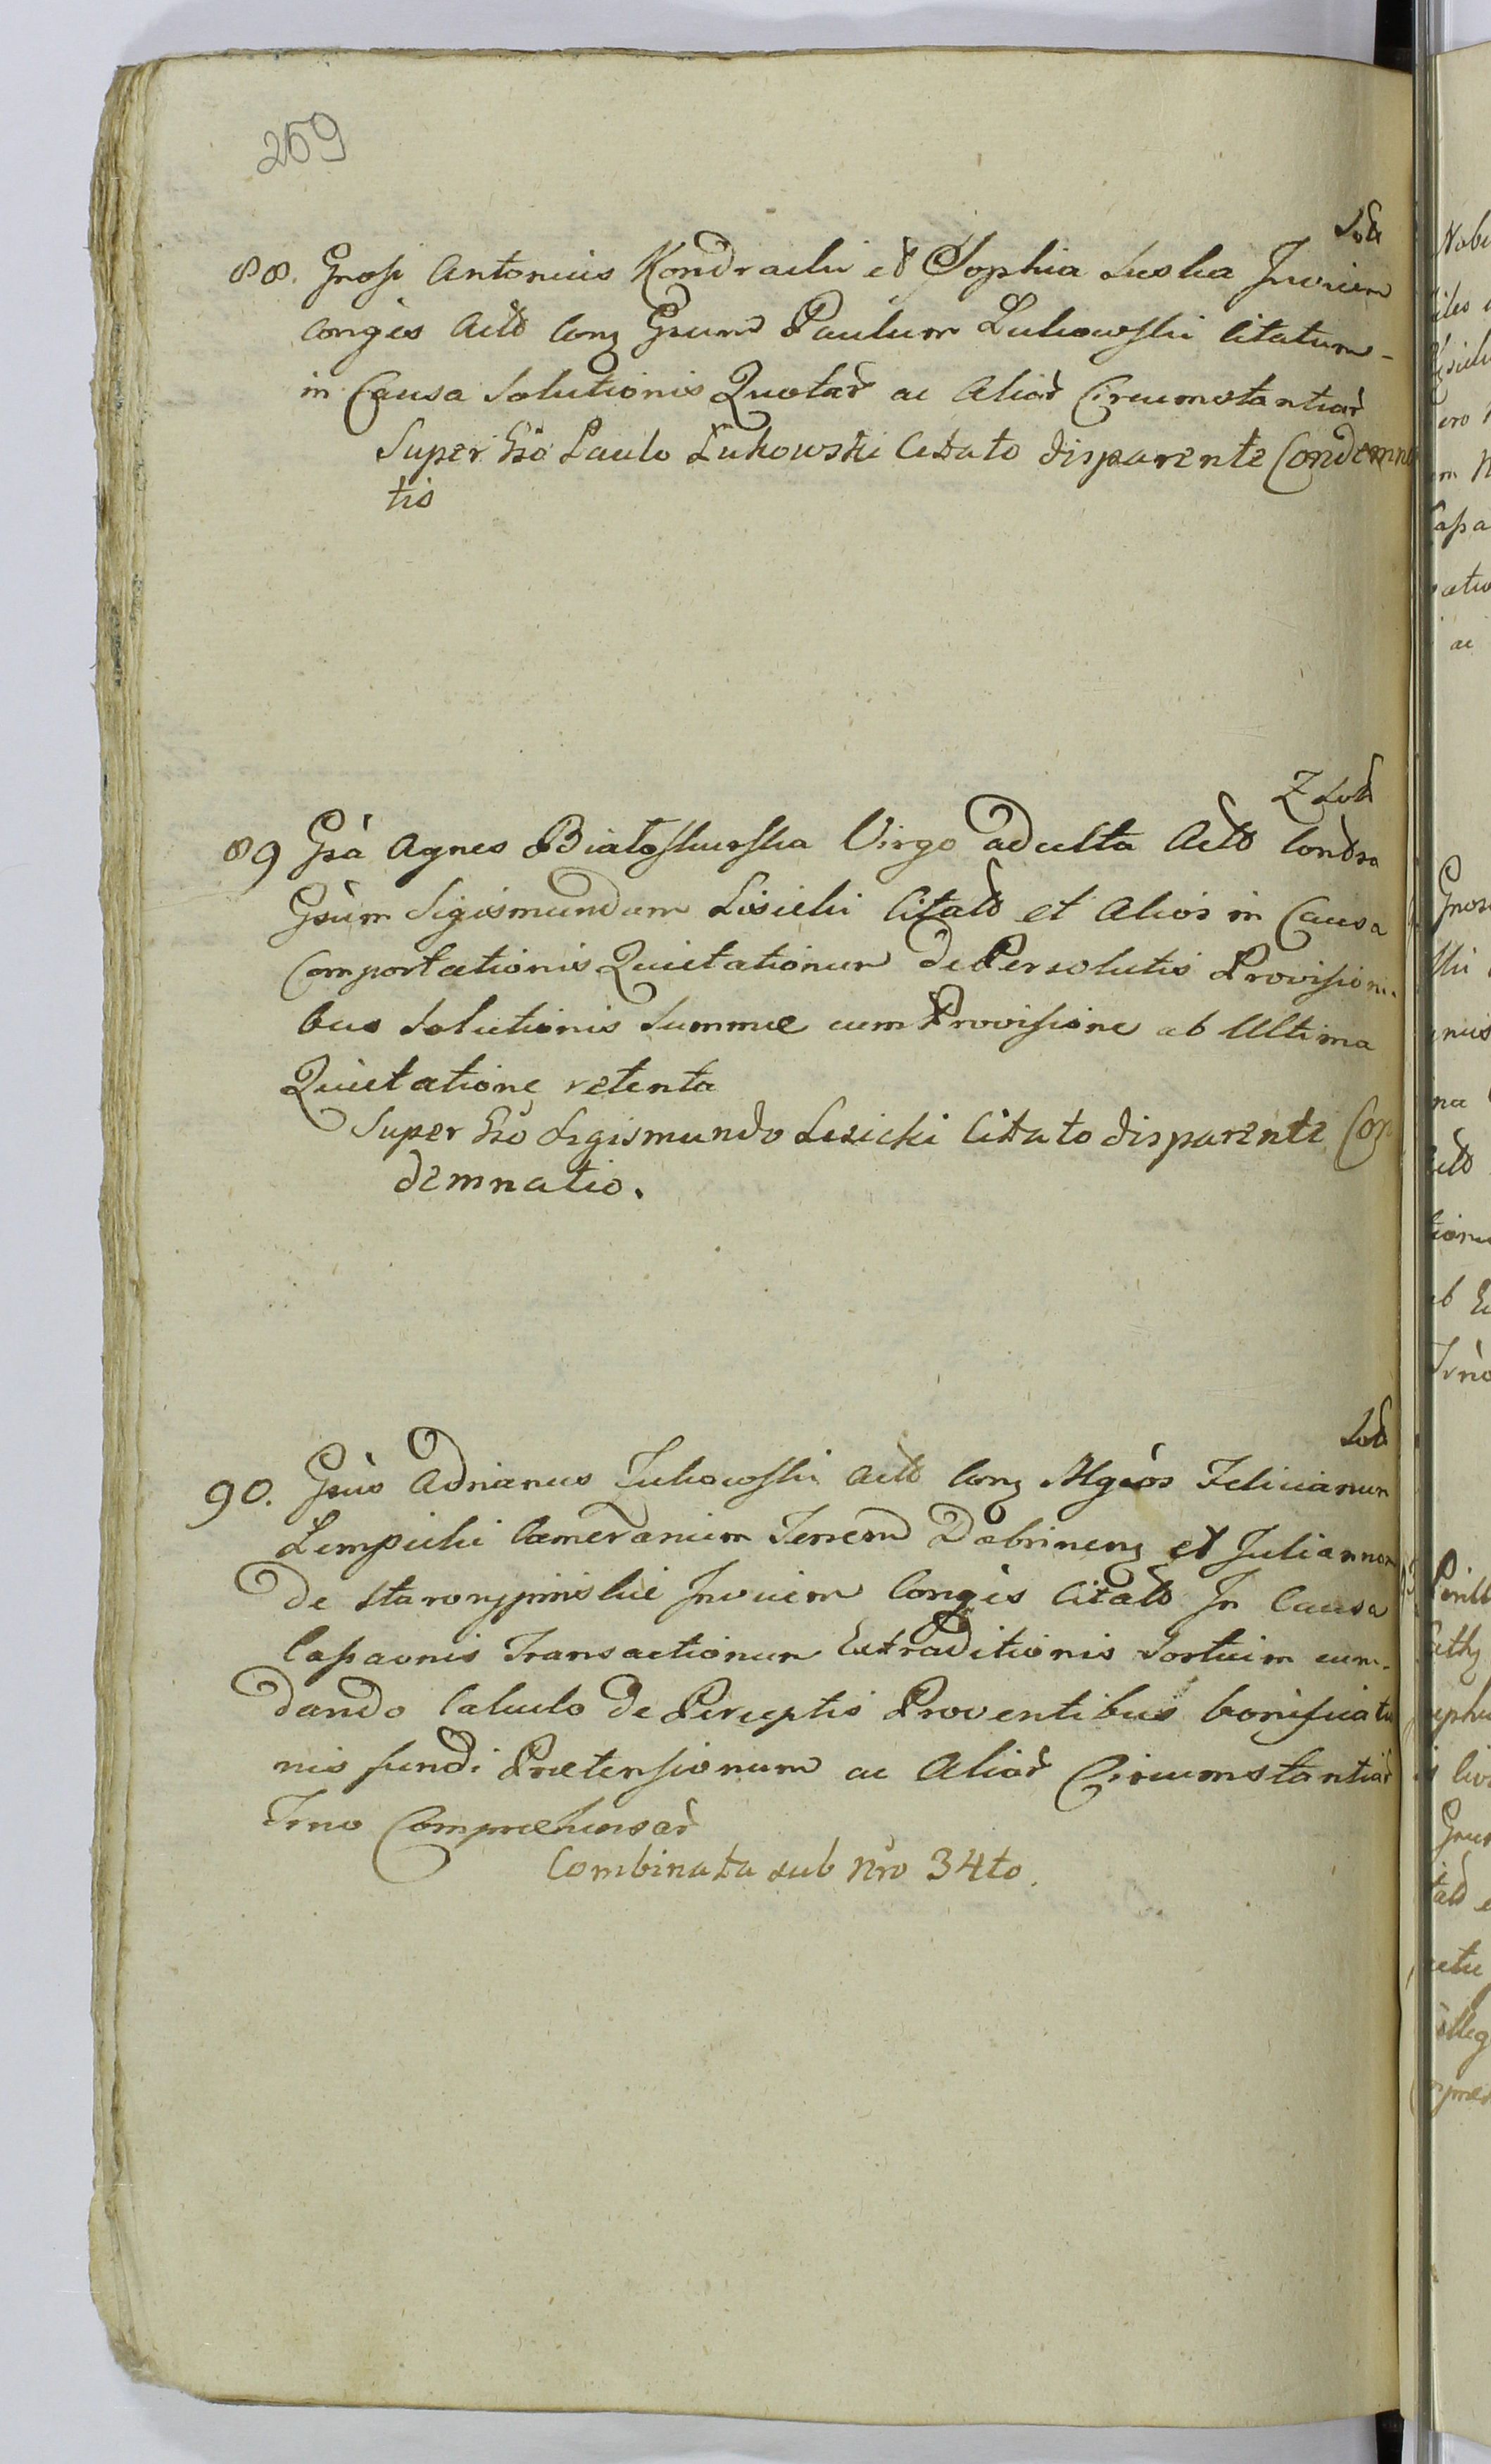 259
Sole
88. Gnosi Antonius Kondracki et Sophia Luska Invicem
Conges Actt Conz Gsum Paulum Lukowski Citatum
in Causa Solutionis Quotar ac Aliar Circumstantiar
Super Gso Paulo Łukowski Citato disparente Condemna
tio
Z Sole
89 Gsa Agnes Białoskurska Virgo adulta Actt Contra
Gsum Sigismundum Lisicki Citatt et Alios in Causa
Comportationis Quietationum de Persolutis Provisioni-
bus Solutionis Summæ cum Provisione ab Ultima
Quietatione retenta
Super Gso Sigismundo Lisicki Citato disparente Con
demnatio.
Sole
90. Gsus Adrianus Łukowski Actt Conz Mgcos Felicianum
Lempicki Camerarium Terrem Dobrinenz et Juliannam
de Starorypinskie Invicem Conges Citatt In Causa
Cassaonis Transactionum Extraditionis Sortium cum
dando Calculo de Perceptis Proventibus bonificatio
nis fundi Prætensionum ac Aliar Circumstantiar
Trno Compræhensar
Combinata sub Nro 34to.